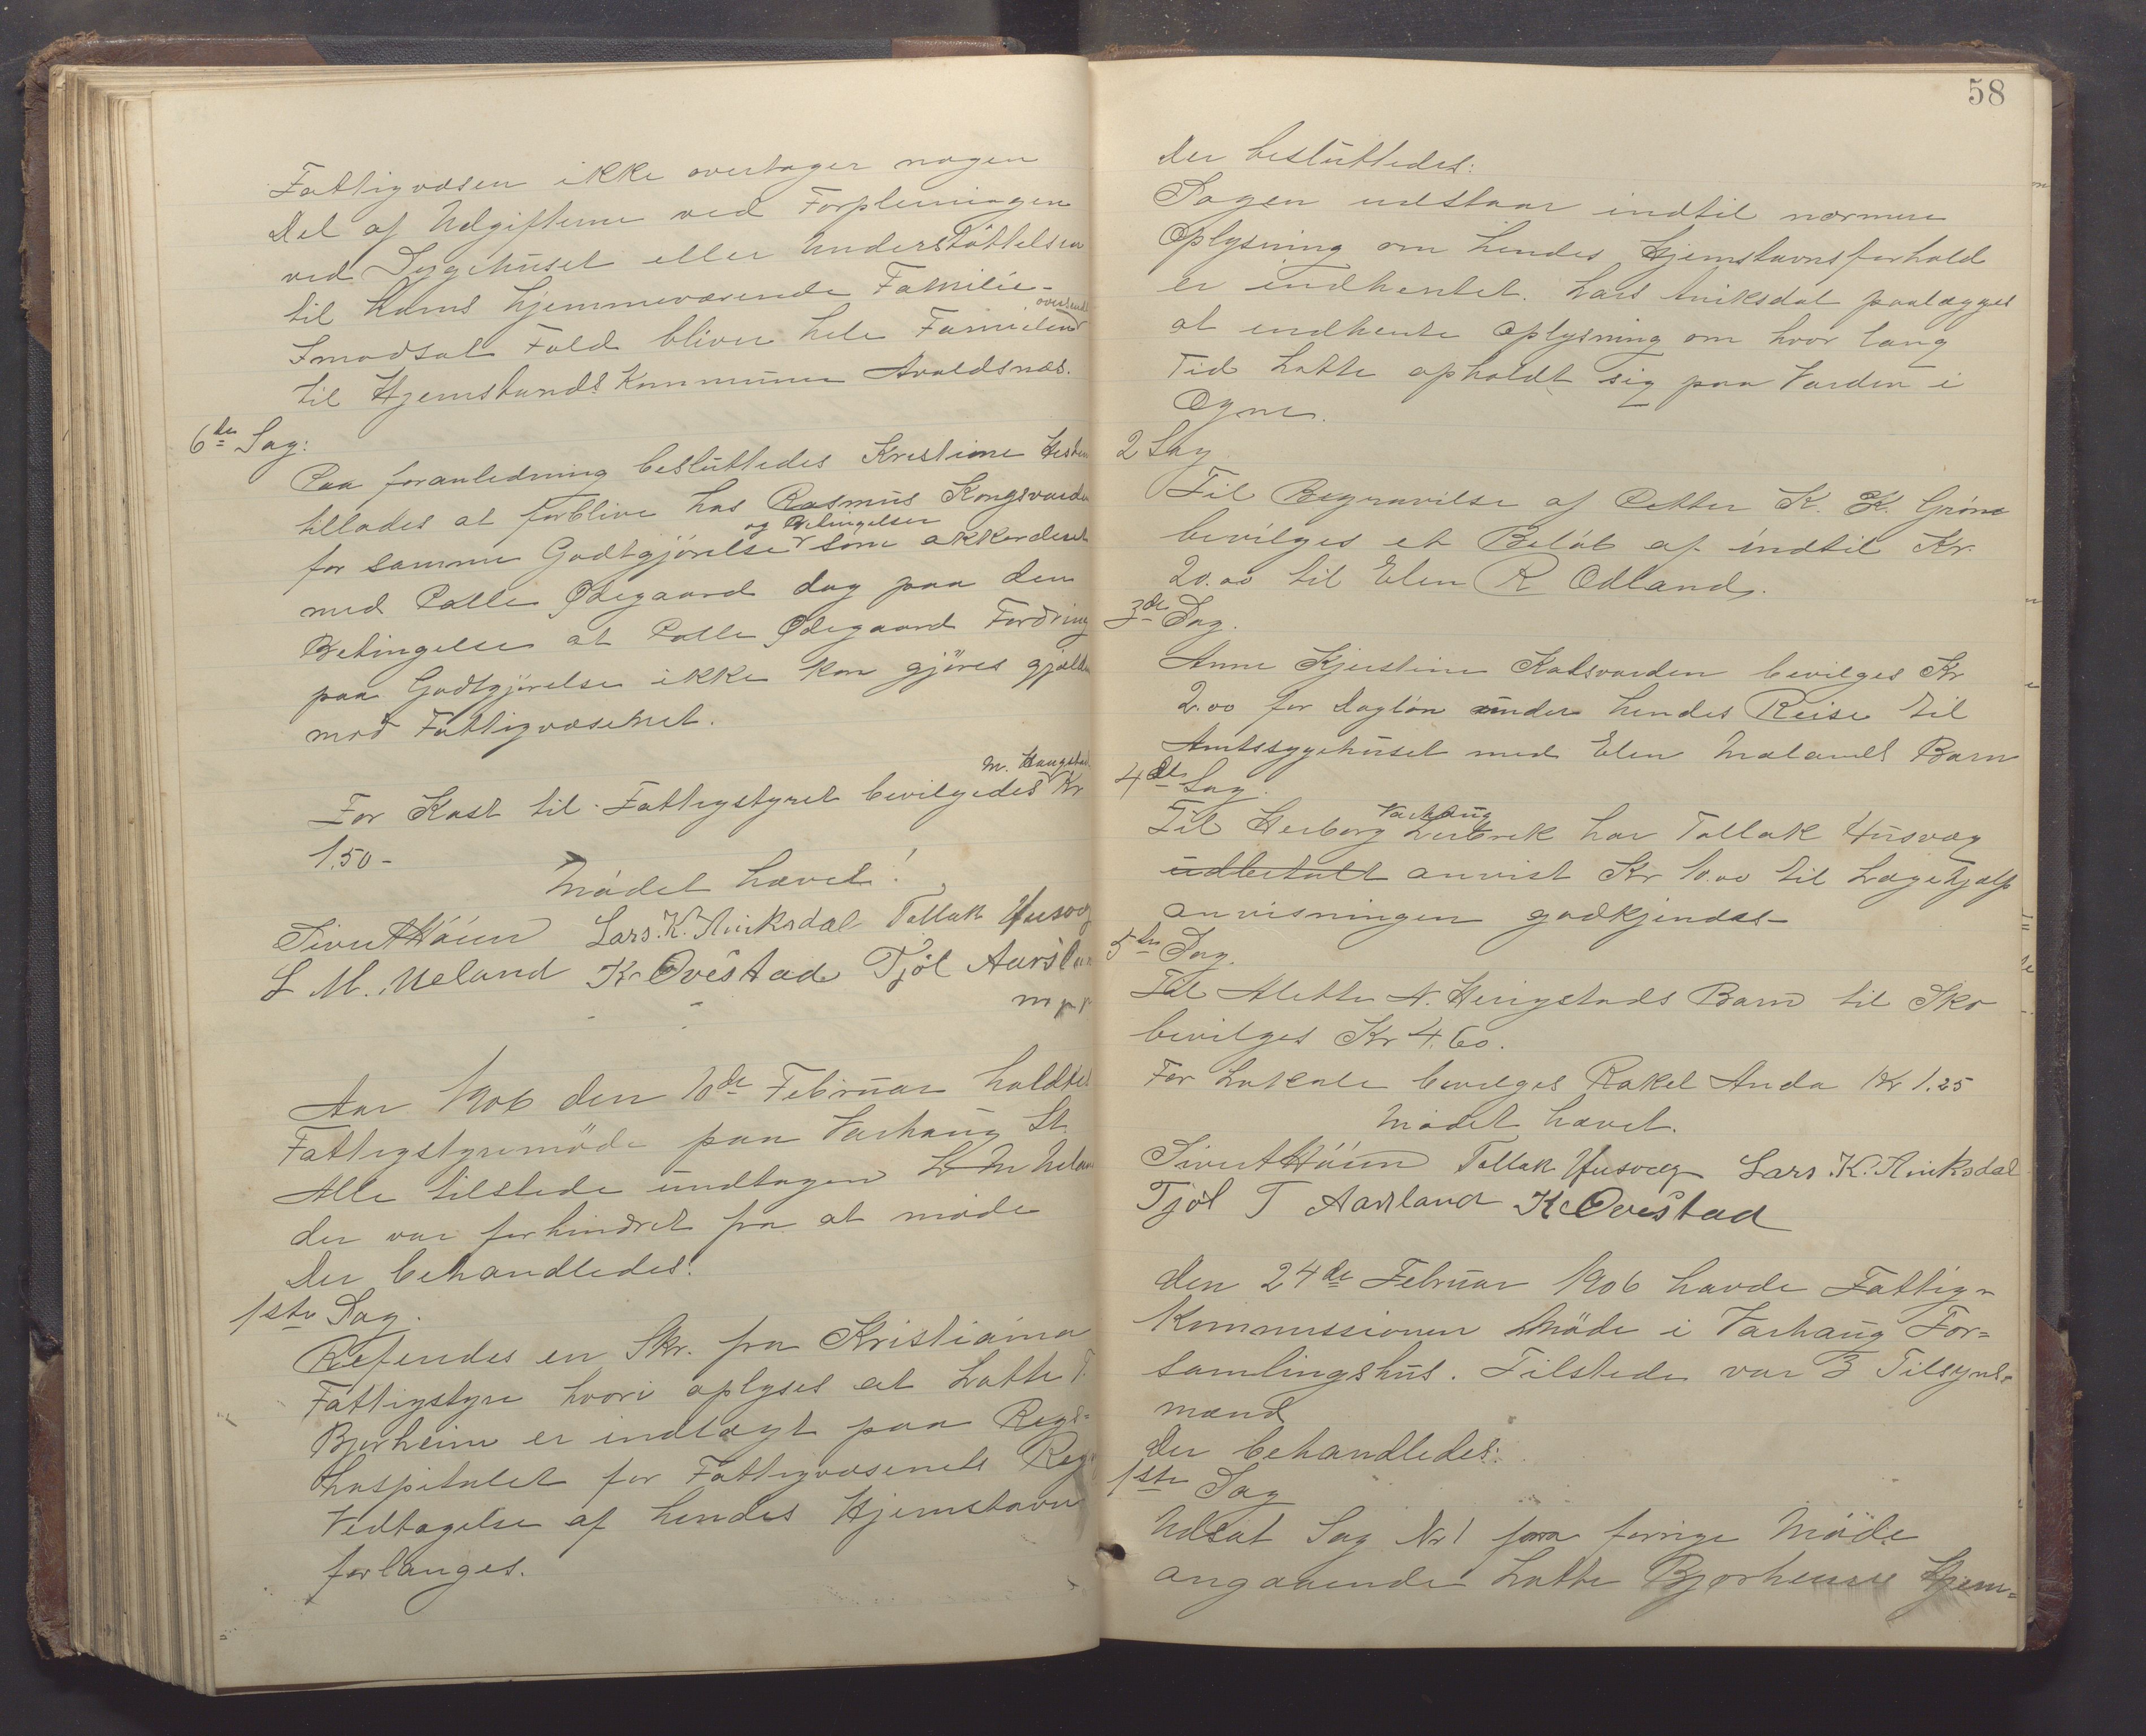 Fattigvæsen ikke overtager nogen
Del af Udgifterne ved Forpleiningen
ved Sygehuset eller Understøttelsen
til hans hjemmeværende Familie-
Imodsat Fald bliver hele Familien oversendt
til Hjemstands Kommunen Avaldsnæs.
6te Sag:
Paa foranledning besluttedes Kristine
tillades at forblive hos Rasmus Kongsvarde
for samme Godtgjörelse og Betingelser som akkorderet
med Palle Ødegaard dog paa den
Betingelse at Palle Ødegaard Fordring
paa Godtgjörelse ikke kan gjöres gjælden
mod Fattigvæsenet.
For Kost til Fattigstyret bevilgedes M. Haugstad Kr
1,50-
Mödet hævet!
Sivert Höien Lars. K. Aniksdal Tallak Husvæg
L M. Ueland K. Ovestad Tjöl Aarslan
m p p
Aar 1906 den 10de Februar holdtes
Fattigstyremöde paa Varhaug St.
Alle tilstede undtagen L M Uelan
der var forhindret fra at möde
Der behandledes:
1ste Sag.
Referedes en Skr. fra Kristiania
Fattigstyre hvori oplyses at Lotte T.
Bjerheim er indlagt paa Regs-
hospitalet for Fattigvæsenets Reg
Vedtagelse af hendes Hjemstavn
forlanges.
58
Der besluttedes:
Sagen udstaar indtil nærmere
Oplysning om hendes Hjemstavnsforhold
er indhentet. Lars Aniksdal paalægges
at indhente Oplysning om hvor lang
Tid Lotte opholdt sig paa Varden i
Ogne.
2 Sag
Til Begravelse af Petter K. K. Gröne
bevilges et Belöb af indtil Kr.
20.00 til Elen R Odland.
3de Sag.
Anne Kjerstine Kalsvarden bevilges Kr
2.00 for Daglön under hendes Reise til
Amtssygehuset med Elen Mælands Barn
4de Sag.
Til Herborg Varhaug Lerbrek har Tallak Husvæg
udbetalt anvist Kr 10.00 til Lægehjælp
anvisningen godkjendes-
5te Sag.
Til Alette N. Herigstads Barn til Sko
bevilges Kr 4.60.
For Lokale bevilges Rakel Anda Kr 1.25
Mödet hævet.
Sivert Höien Tallak Husvæg Lars. K. Aniksdal
Tjöl T Aarsland K. Ovestad
den 24de Februar 1906 havde Fattig-
Kommissionen Möde i Varhaug For=
samlingshus. Tilstede var 3 Tilsyns-
mænd
Der behandledes:
1ste Sag
Udsat Sag Nr 1 fra forrige Möde
angaaende Lotte Bjerheims Hjem=